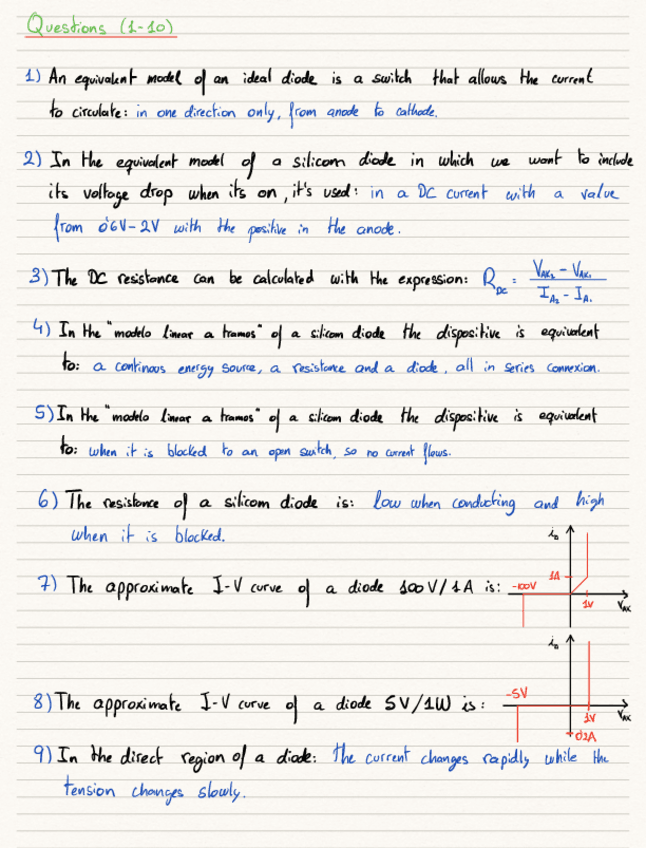 Questions (1-10)
1) An equivalent model of an ideal diode is a switch that allows the current
to circulate: in one direction only, from anode to cathode.
2) In the equivalent model of a silicon diode in which we want to include
its voltage drop when its on, it's used: in a DC current with a value
from 0'6V-2V with the positive in the anode.
3) The DC resistance can be calculated with the expression: R_DC = (V_AK2 - V_AK1) / (I_A2 - I_A1)
4) In the "modelo linear a tramos" of a silicom diode the dispositive is equivalent
to: a continous energy source, a resistance and a diode, all in series connexion.
5) In the "modelo linear a tramos" of a silicom diode the dispositive is equivalent
to: when it is blocked to an open switch, so no current flows.
6) The resistance of a silicom diode is: low when conducting and high
when it is blocked.
7) The approximate I-V curve of a diode 100V/1A is:
i_D
1A
-100V
1V
V_AK
8) The approximate I-V curve of a diode 5V/1W is:
i_D
-5V
1V
V_AK
0'2A
9) In the direct region of a diode: the current changes rapidly while the
tension changes slowly.